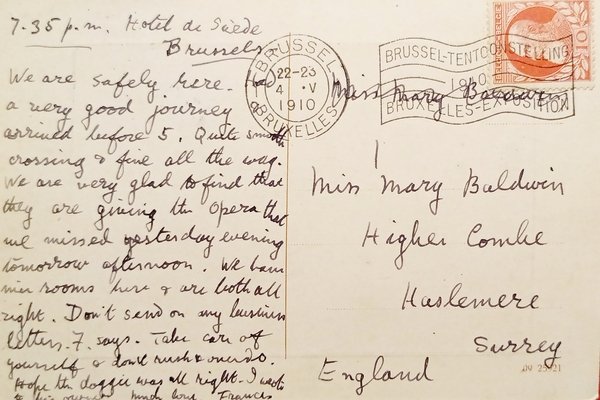 7.35 p.m. Hotel de Suède
Brussels
We are safely here.
a very good journey
arrived before 5. Quite smooth
crossing & fine all the way.
We are very glad to find that
they are giving the Opera that
we missed yesterday evening
tomorrow afternoon. We have
nice rooms here & are both all
right. Don't send on any business
letters. F. says. Take care of
yourself & don't rush & overdo.
Hope the doggie was all right. I wrote
to his owner. Much love. Frances
BRUSSEL
22-23
4 V
1910
BRUXELLES
BRUSSEL-TENTOONSTELLING
1910
BRUXELLES-EXPOSITION
10
Miss Mary Baldwin
Miss Mary Baldwin
Higher Combe
Haslemere
Surrey
England